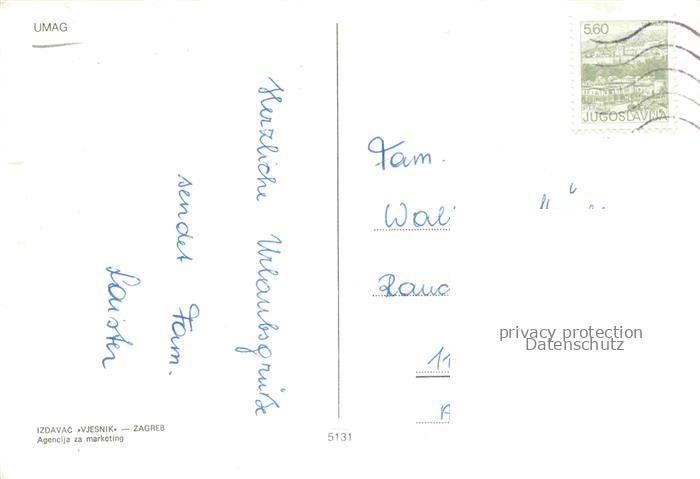 UMAG
Herzliche Urlaubsgrüße
sendet Fam.
Laister
Fam.
5.60
JUGOSLAVIJA
privacy protection
Datenschutz
IZDAVAČ »VJESNIK« — ZAGREB
Agencija za marketing
5131